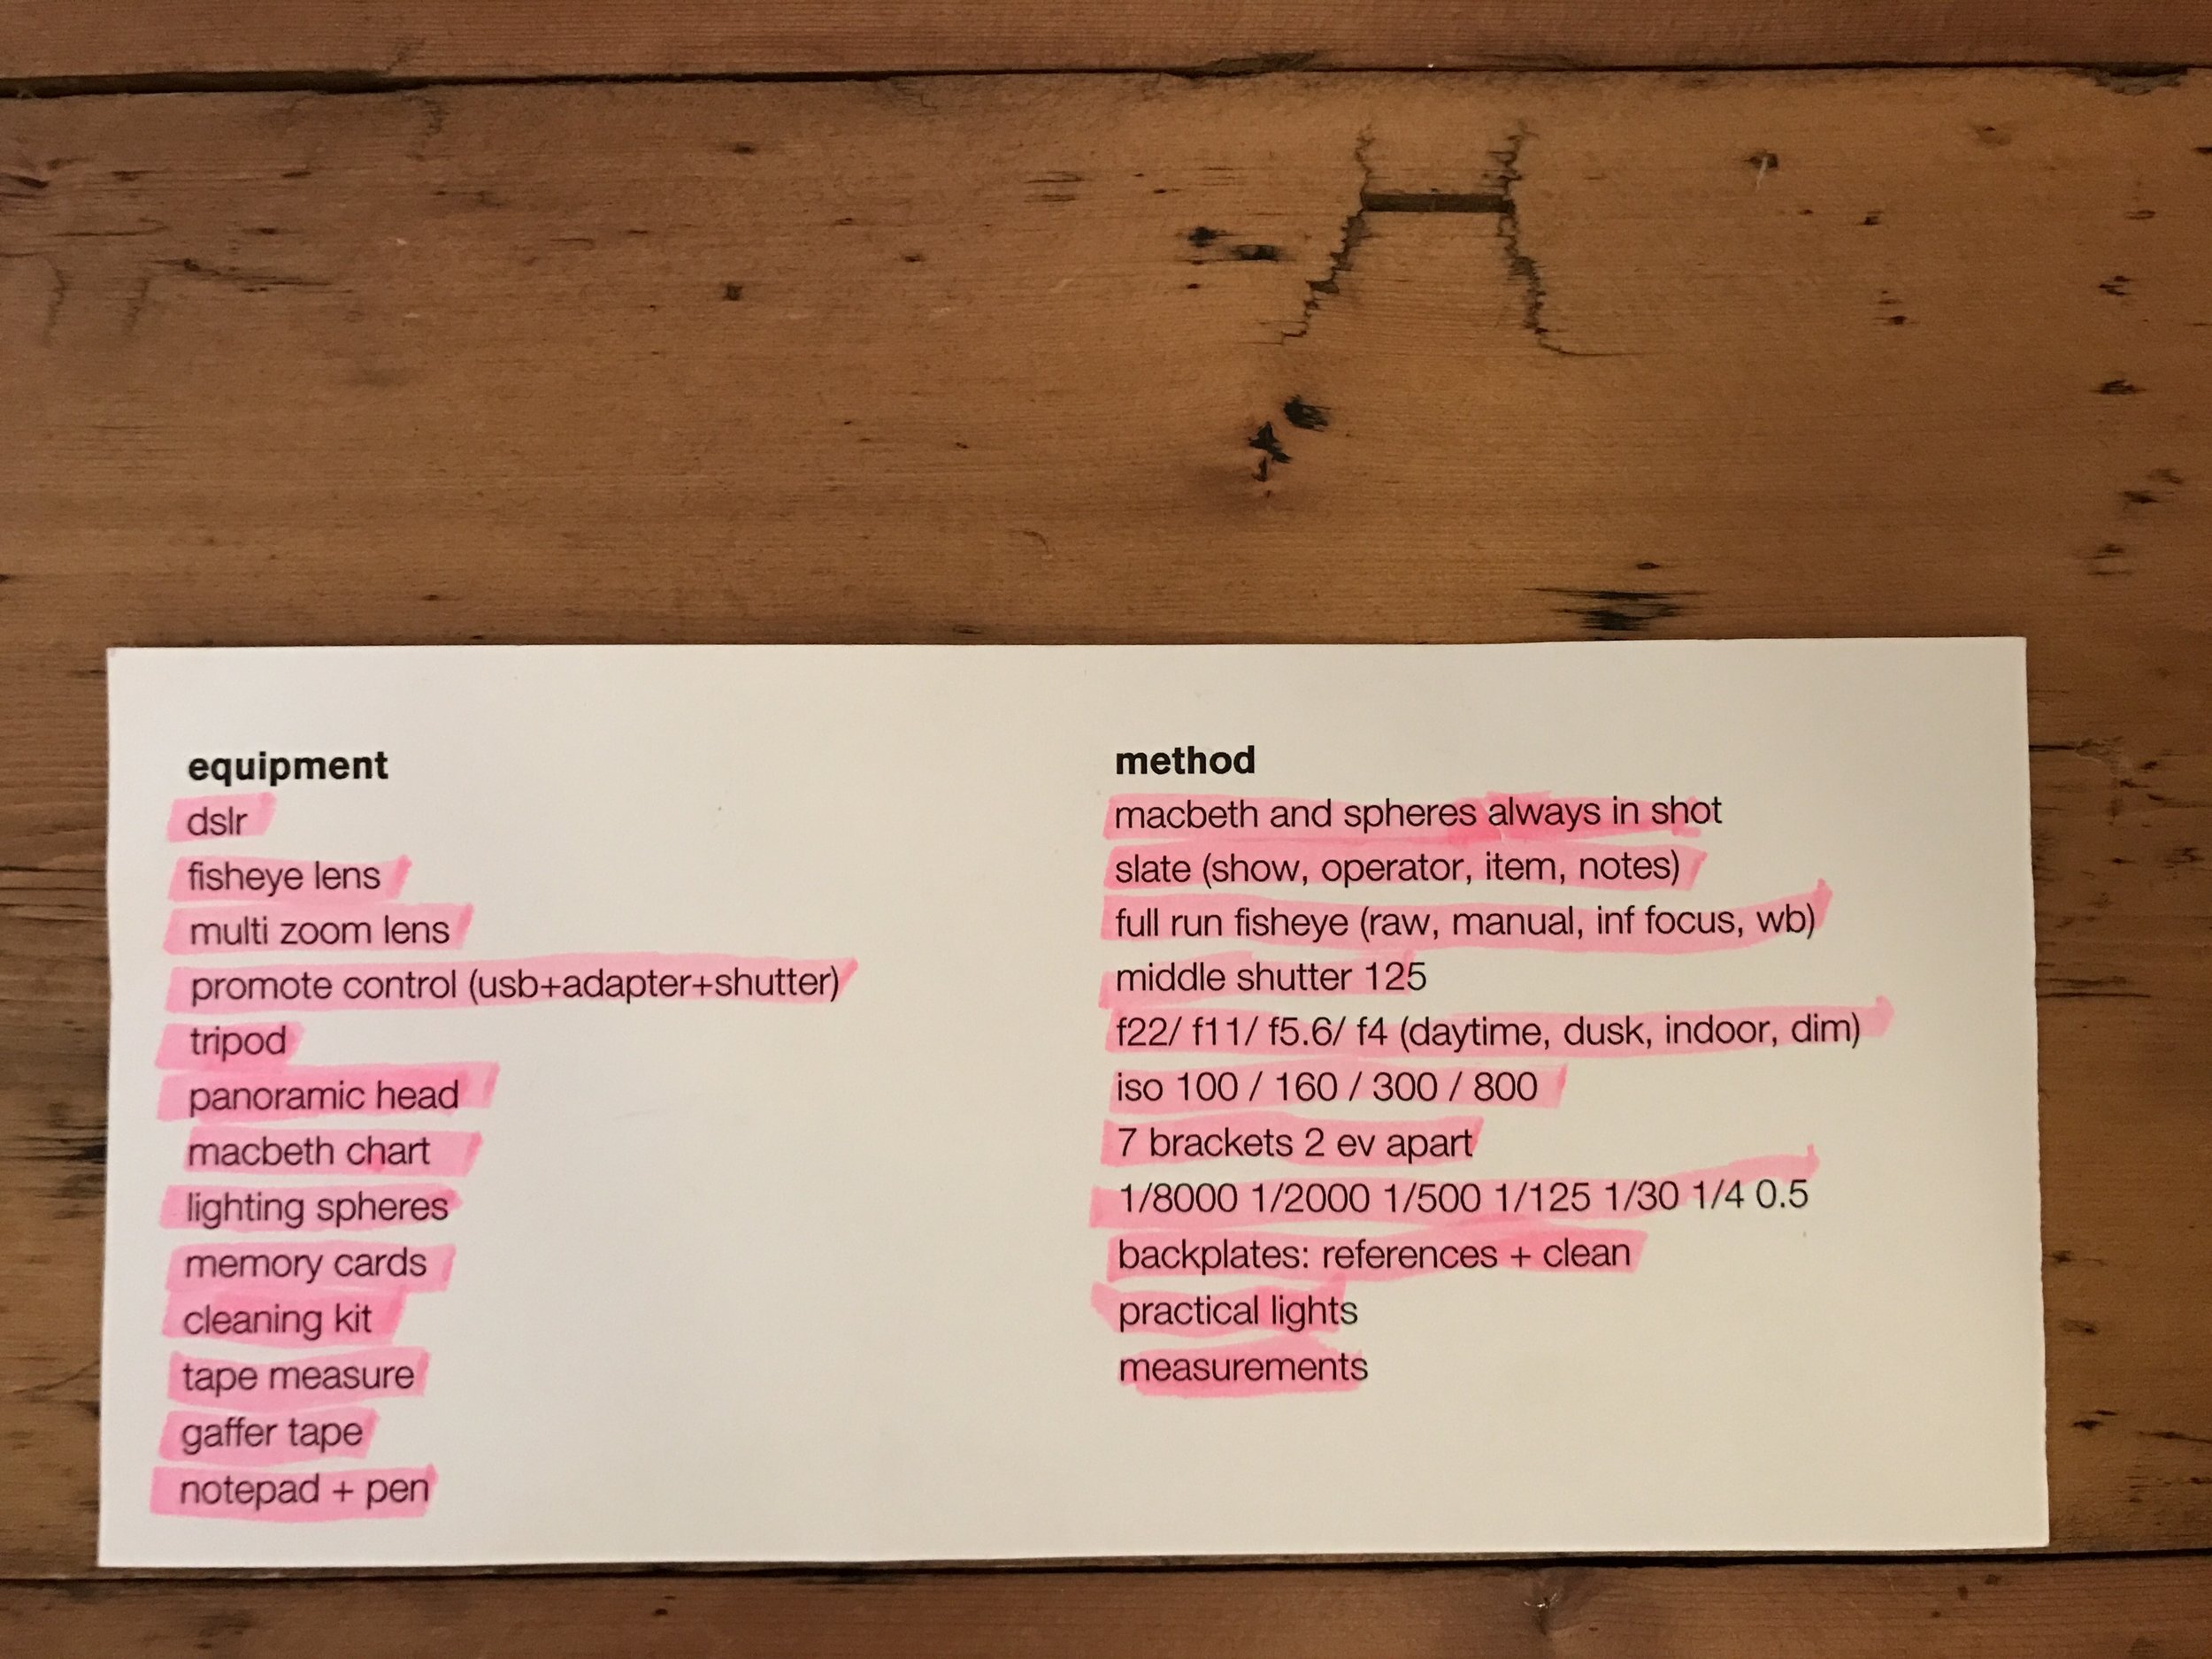 equipment
dslr
fisheye lens
multi zoom lens
promote control (usb+adapter+shutter)
tripod
panoramic head
macbeth chart
lighting spheres
memory cards
cleaning kit
tape measure
gaffer tape
notepad + pen
method
macbeth and spheres always in shot
slate (show, operator, item, notes)
full run fisheye (raw, manual, inf focus, wb)
middle shutter 125
f22/ f11/ f5.6/ f4 (daytime, dusk, indoor, dim)
iso 100 / 160 / 300 / 800
7 brackets 2 ev apart
1/8000 1/2000 1/500 1/125 1/30 1/4 0.5
backplates: references + clean
practical lights
measurements